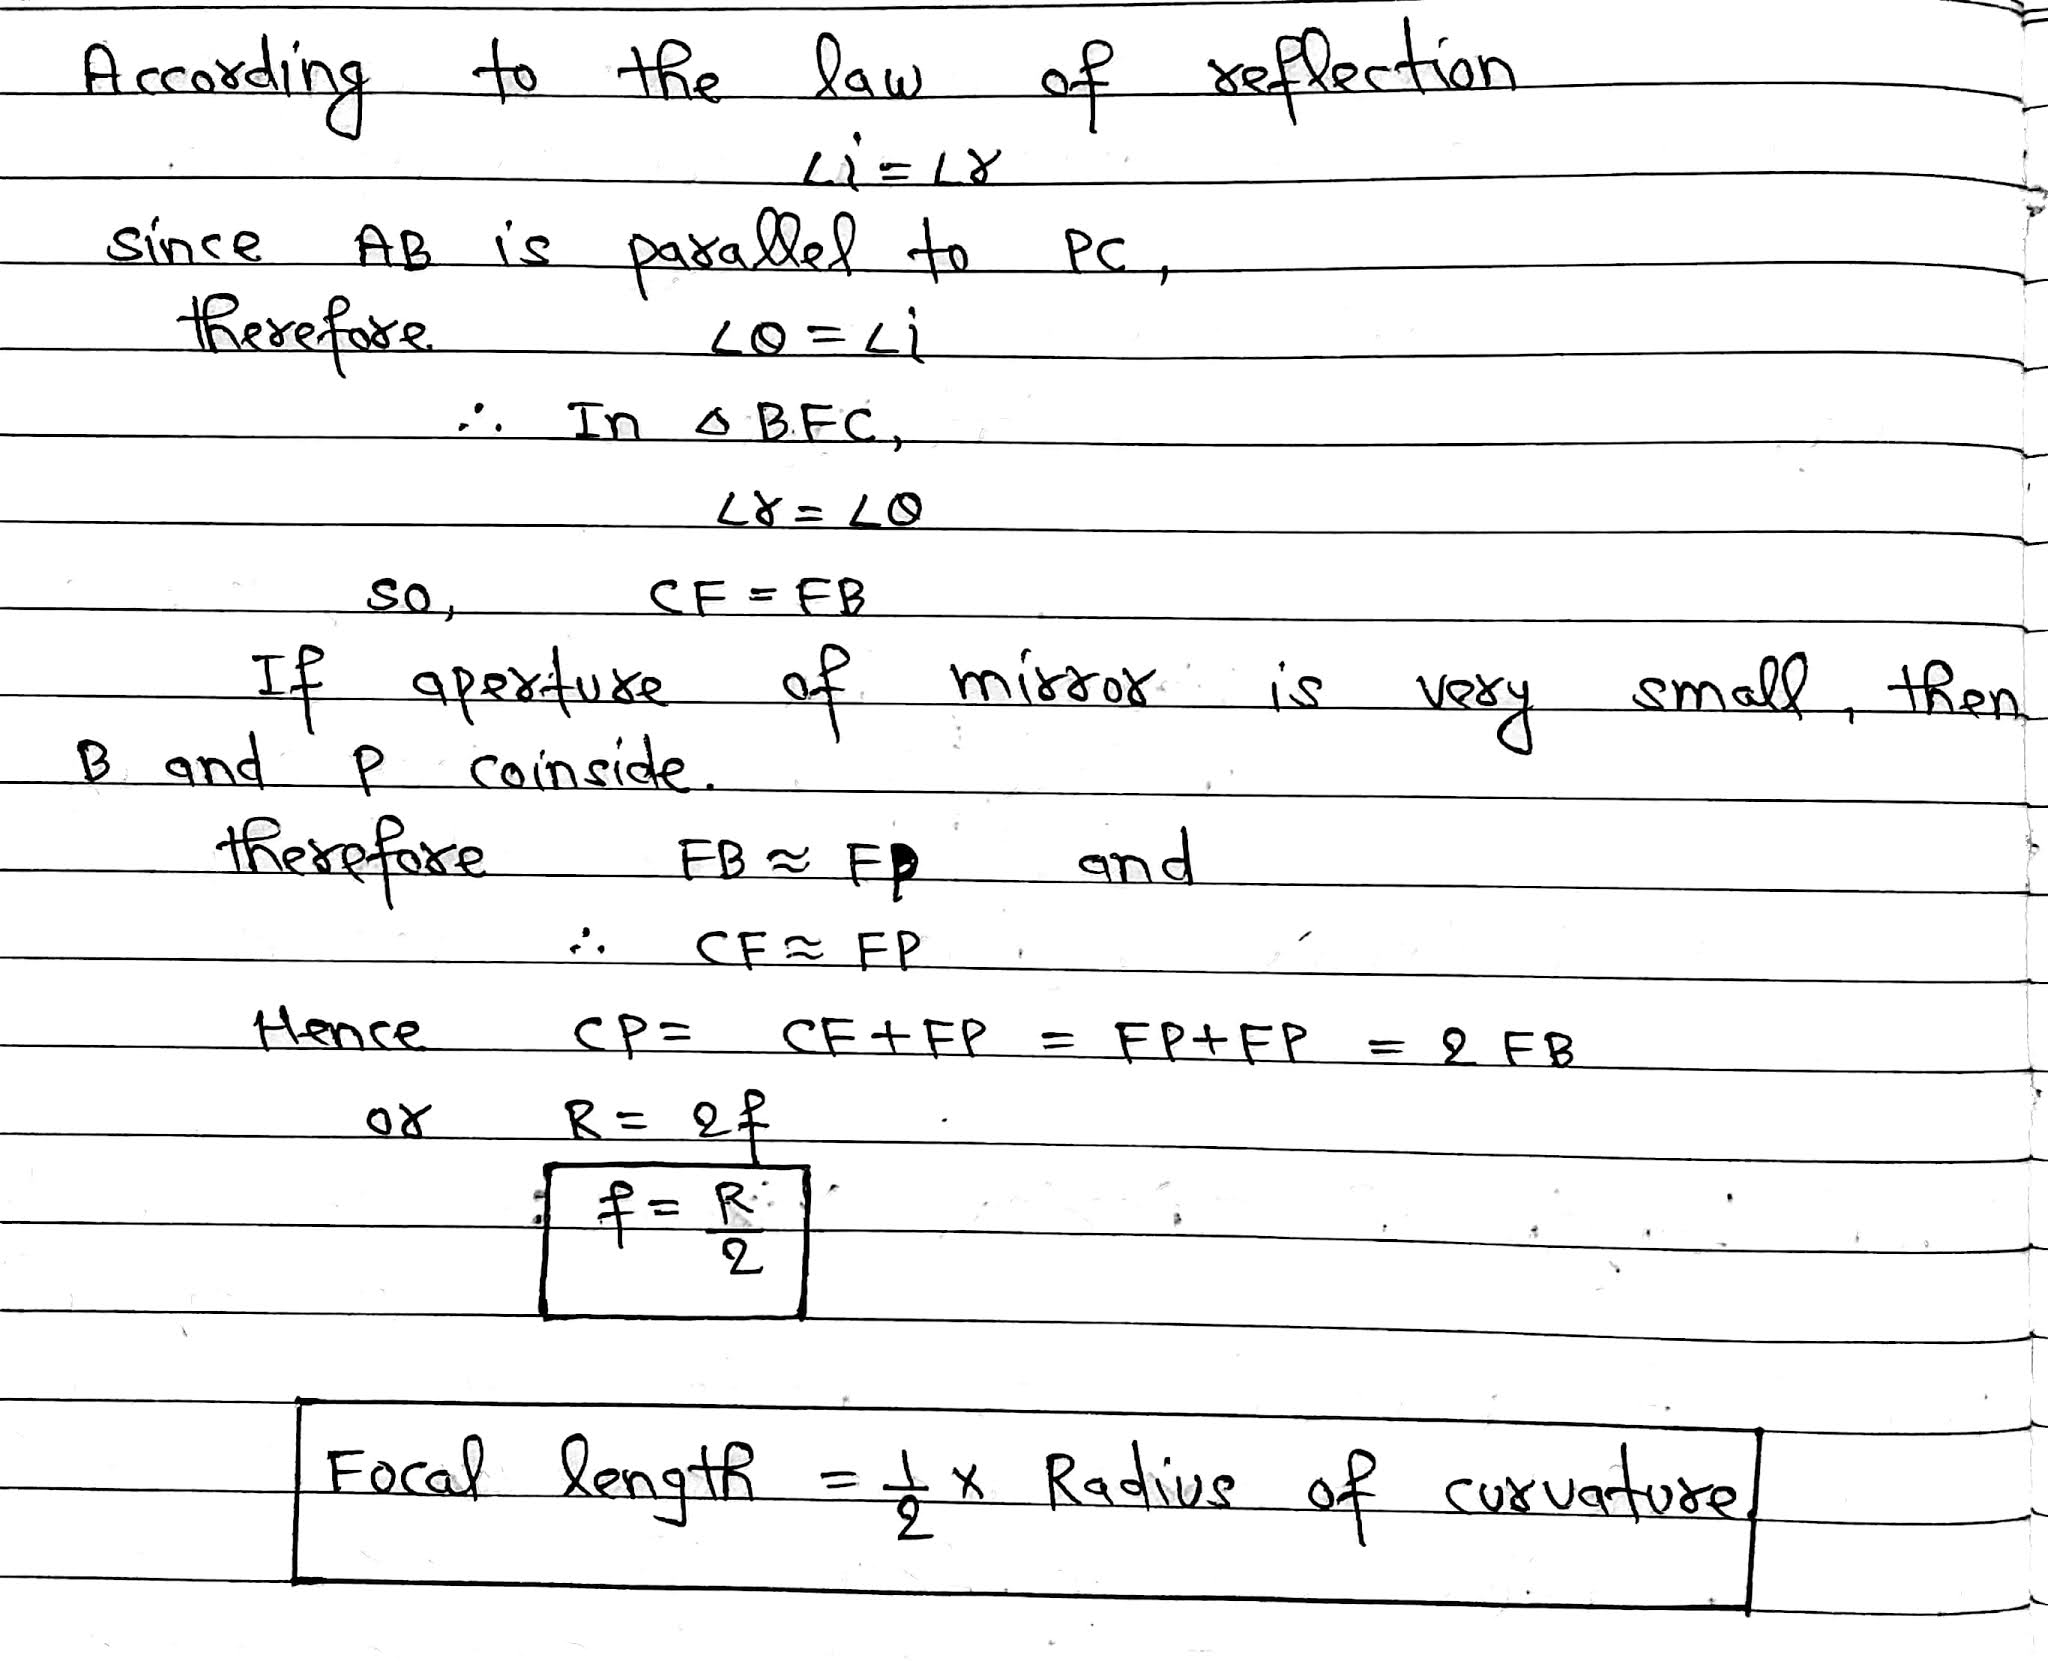 According to the law of reflection
∠i = ∠r
since AB is parallel to PC,
therefore ∠θ = ∠i
∴ In △ BFC,
∠r = ∠θ
so, CF = FB
If aperture of mirror is very small, then
B and P coinside.
therefore FB ≈ FP and
∴ CF ≈ FP
Hence CP = CF + FP = FP + FP = 2 FB
or R = 2f
f = R/2
Focal length = 1/2 × Radius of curvature